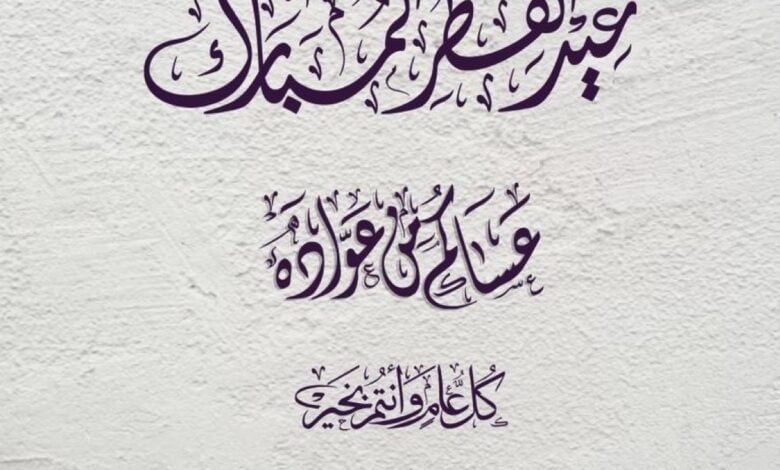 عيد الفطر المبارك
عساكم من عواده
كل عام وأنتم بخير